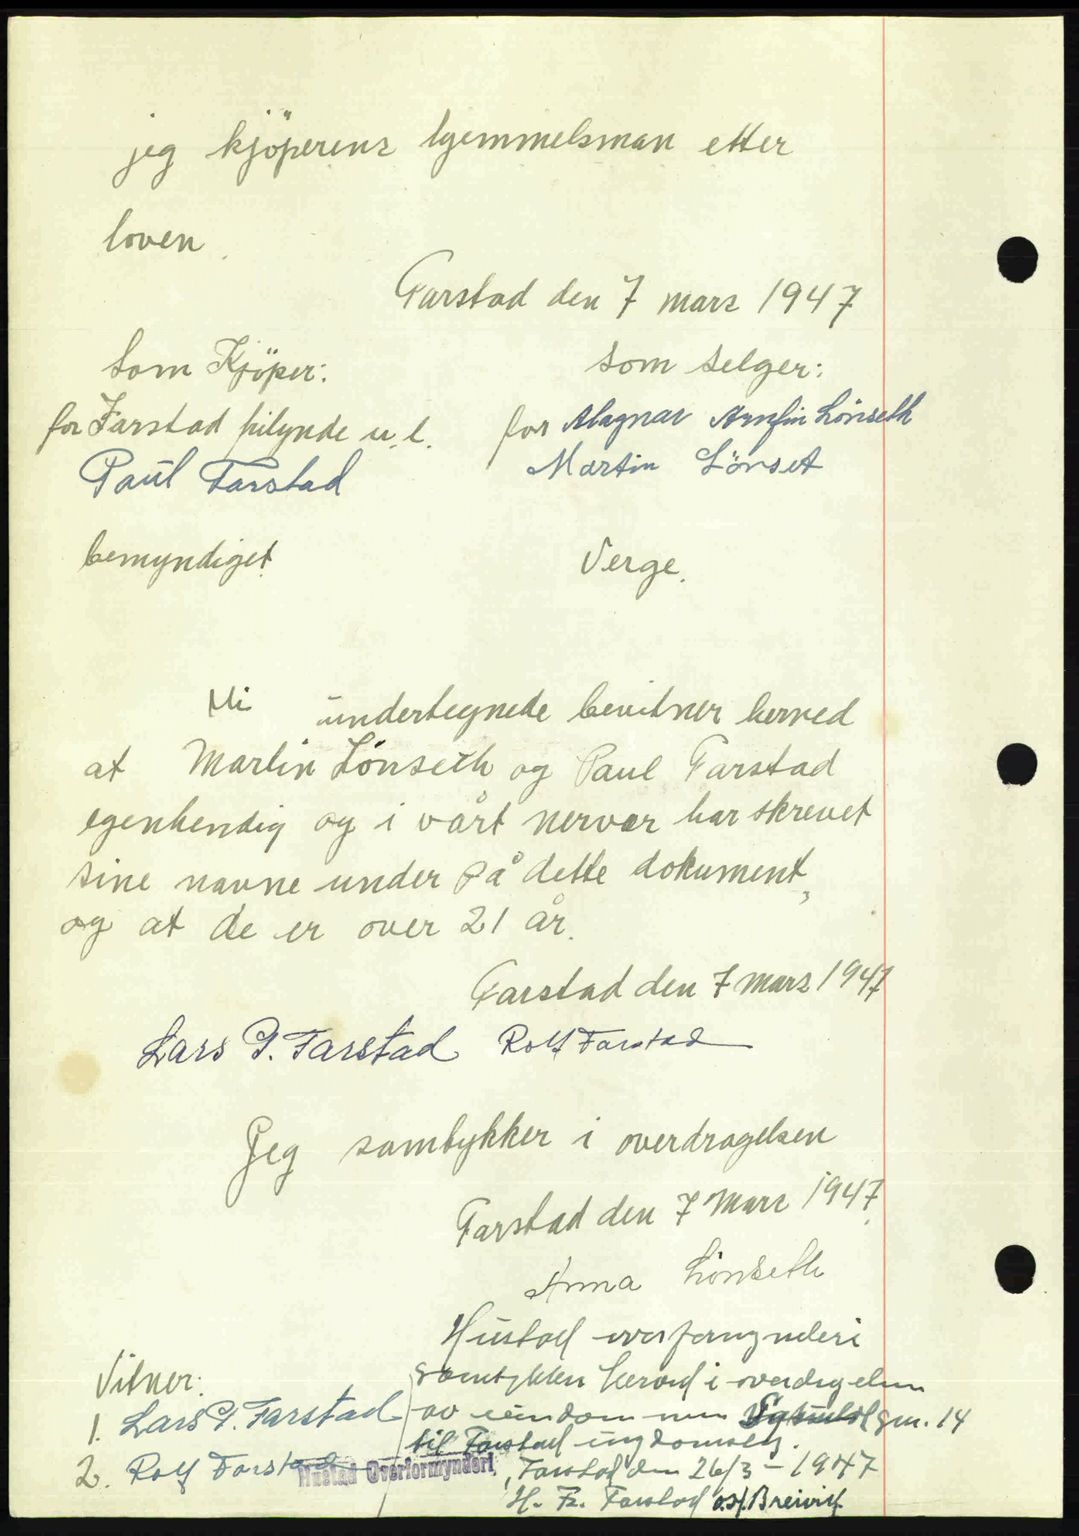 jeg kjöperens hjemmelsman etter
loven.
Farstad den 7 mars 1947
Som Kjöper:
for Farstad hilynde u. l.
Paul Farstad
bemyndiget
Som selger:
for Magnar Arnfin Lönseth
Martin Lönset
Verge.
Vi undertegnede bevitner herved
at Martin Lönseth og Paul Farstad
egenhendig og i vårt nervær har skrevet
sine navne under på dette dokument,
og at de er over 21 år.
Farstad den 7 mars 1947
Lars P. Farstad Rolf Farstad
Jeg samtykker i overdragelsen
Farstad den 7 Mars 1947
Anna Lönseth
Vitner:
1. Lars P. Farstad
2. Rolf Farstad
Hustad overformynderi
samtykker herved i overdragelsen
av eiendommen gnr. 14
til Farstad ungdomslag.
Hustad Overformynderi, Farstad den 26/3 - 1947
H. Farstad O. H. Breivik